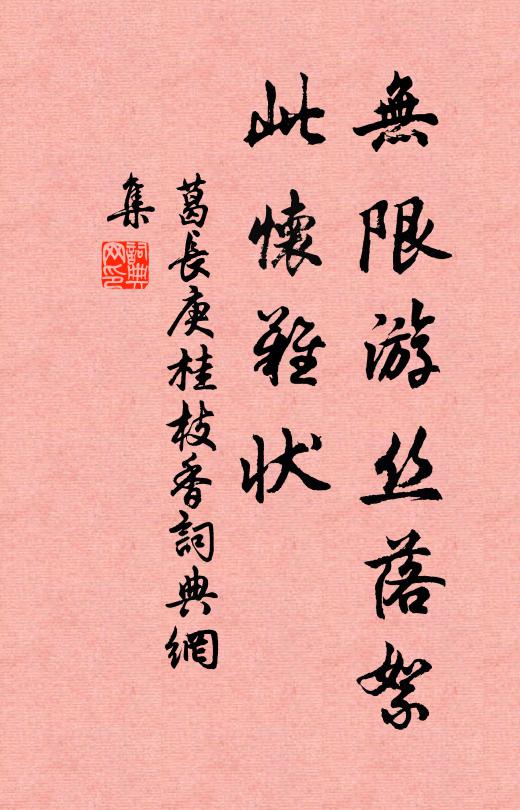 無限游丝落絮
此懷難状
葛長庚桂枝香詞典網
集
詞典
网印